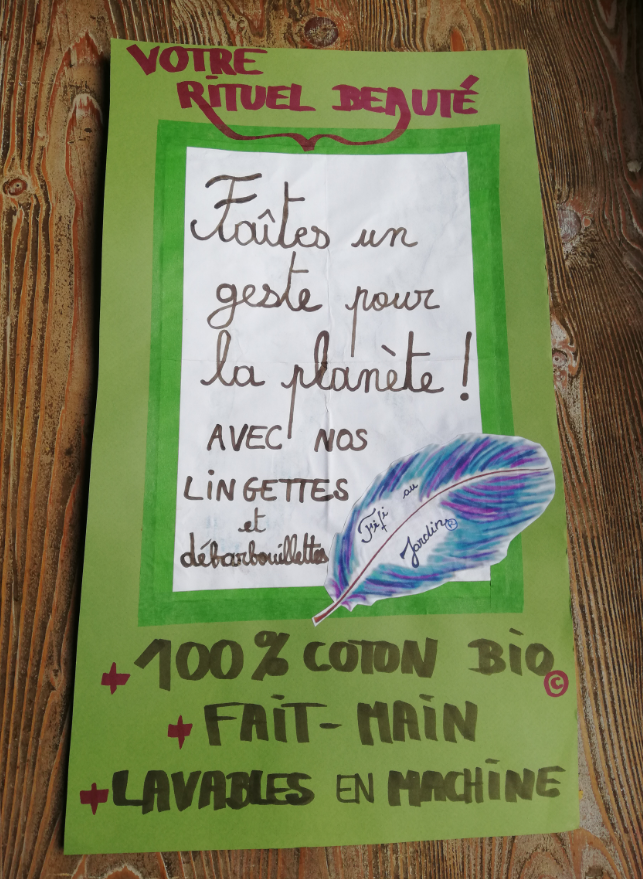 VOTRE
RITUEL BEAUTÉ
Faîtes un
geste pour
la planète !
AVEC NOS
LINGETTES
et
débarbouillettes
Fifi au
Jardin ©
+ 100% COTON BIO ©
+ FAIT-MAIN
+ LAVABLES EN MACHINE